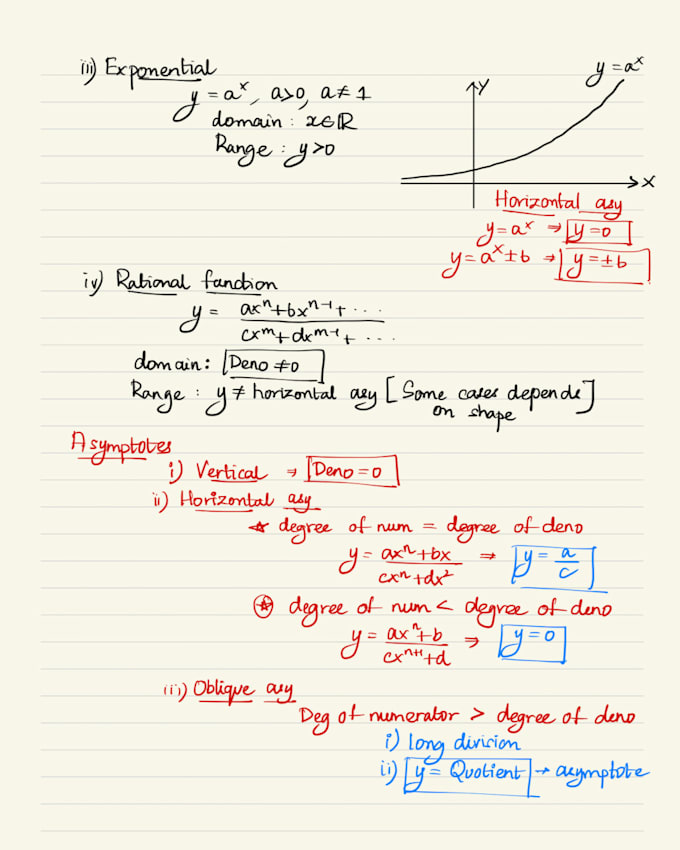 iii) Exponential
y = aˣ, a>0, a≠1
domain : x∈ℝ
Range : y>0
y = aˣ
Y
X
Horizontal asy
y = aˣ ⇒ y=0
y = aˣ ± b ⇒ y = ±b
iv) Rational function
y = axⁿ+bxⁿ⁻¹+ ···
cxᵐ+dxᵐ⁻¹+ ···
domain: Deno ≠0
Range : y ≠ horizontal asy [Some cases depends
on shape]
Asymptotes
i) Vertical ⇒ Deno = 0
ii) Horizontal asy
★ degree of num = degree of deno
y = axⁿ+bx ⇒ y = a
cxⁿ+dx² c
★ degree of num < degree of deno
y = axⁿ+b ⇒ y = 0
cxⁿ⁺¹+d
iii) Oblique asy
Deg of numerator > degree of deno
i) long division
ii) y = Quotient → asymptote